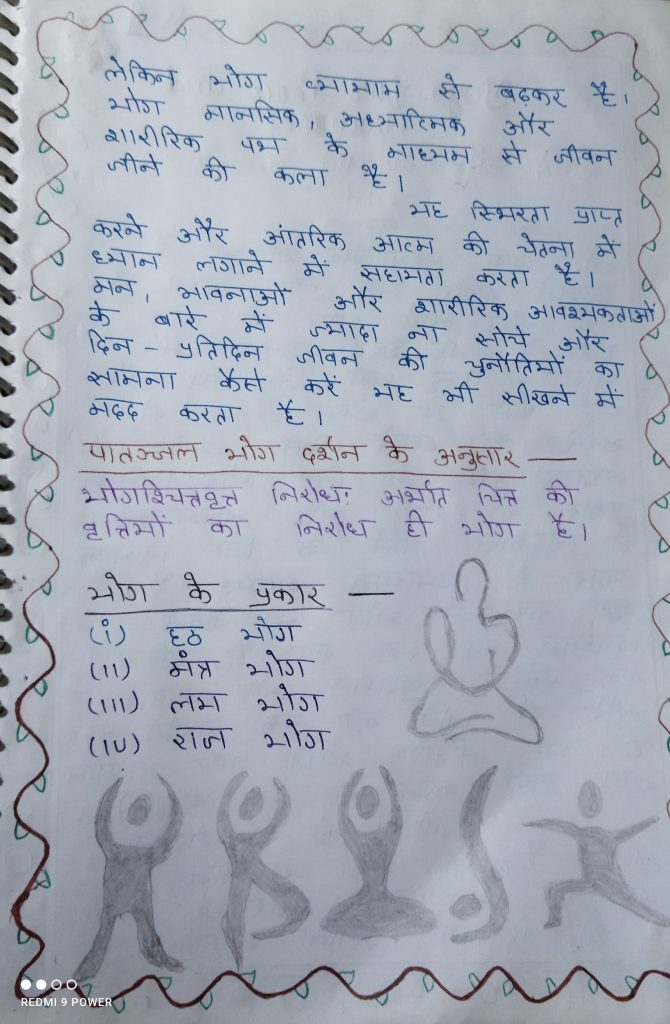 लेकिन योग व्यायाम से बढ़कर है।
योग मानसिक, अध्यात्मिक और
शारीरिक पथ के माध्यम से जीवन
जीने की कला है।
यह स्थिरता प्राप्त
करने और आंतरिक आत्म की चेतना में
ध्यान लगाने में सहायता करता है।
मन, भावनाओं और शारीरिक आवश्यकताओं
के बारे में ज्यादा ना सोचे और
दिन - प्रतिदिन जीवन की चुनौतियों का
सामना कैसे करें यह भी सीखने में
मदद करता है।
पातञ्जल योग दर्शन के अनुसार —
योगश्चित्तवृत्त निरोधः अर्थात चित्त की
वृत्तियों का निरोध ही योग है।
योग के प्रकार —
(i) हठ योग
(II) मंत्र योग
(III) लय योग
(IV) राज योग
REDMI 9 POWER